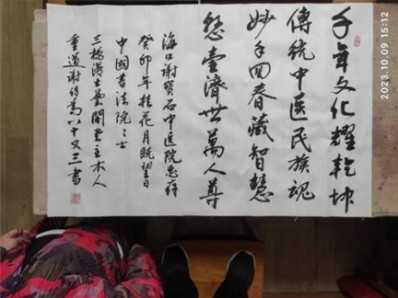 千年文化耀乾坤
傳統中医民族魂
妙手回春藏智慧
悬壶濟世萬人尊
海口谢寳石中医院惠存
癸卯年桂花月既望日
中國书法院士
三槐
主木人
重道谢
八十又三書
2023.10.09 15:12